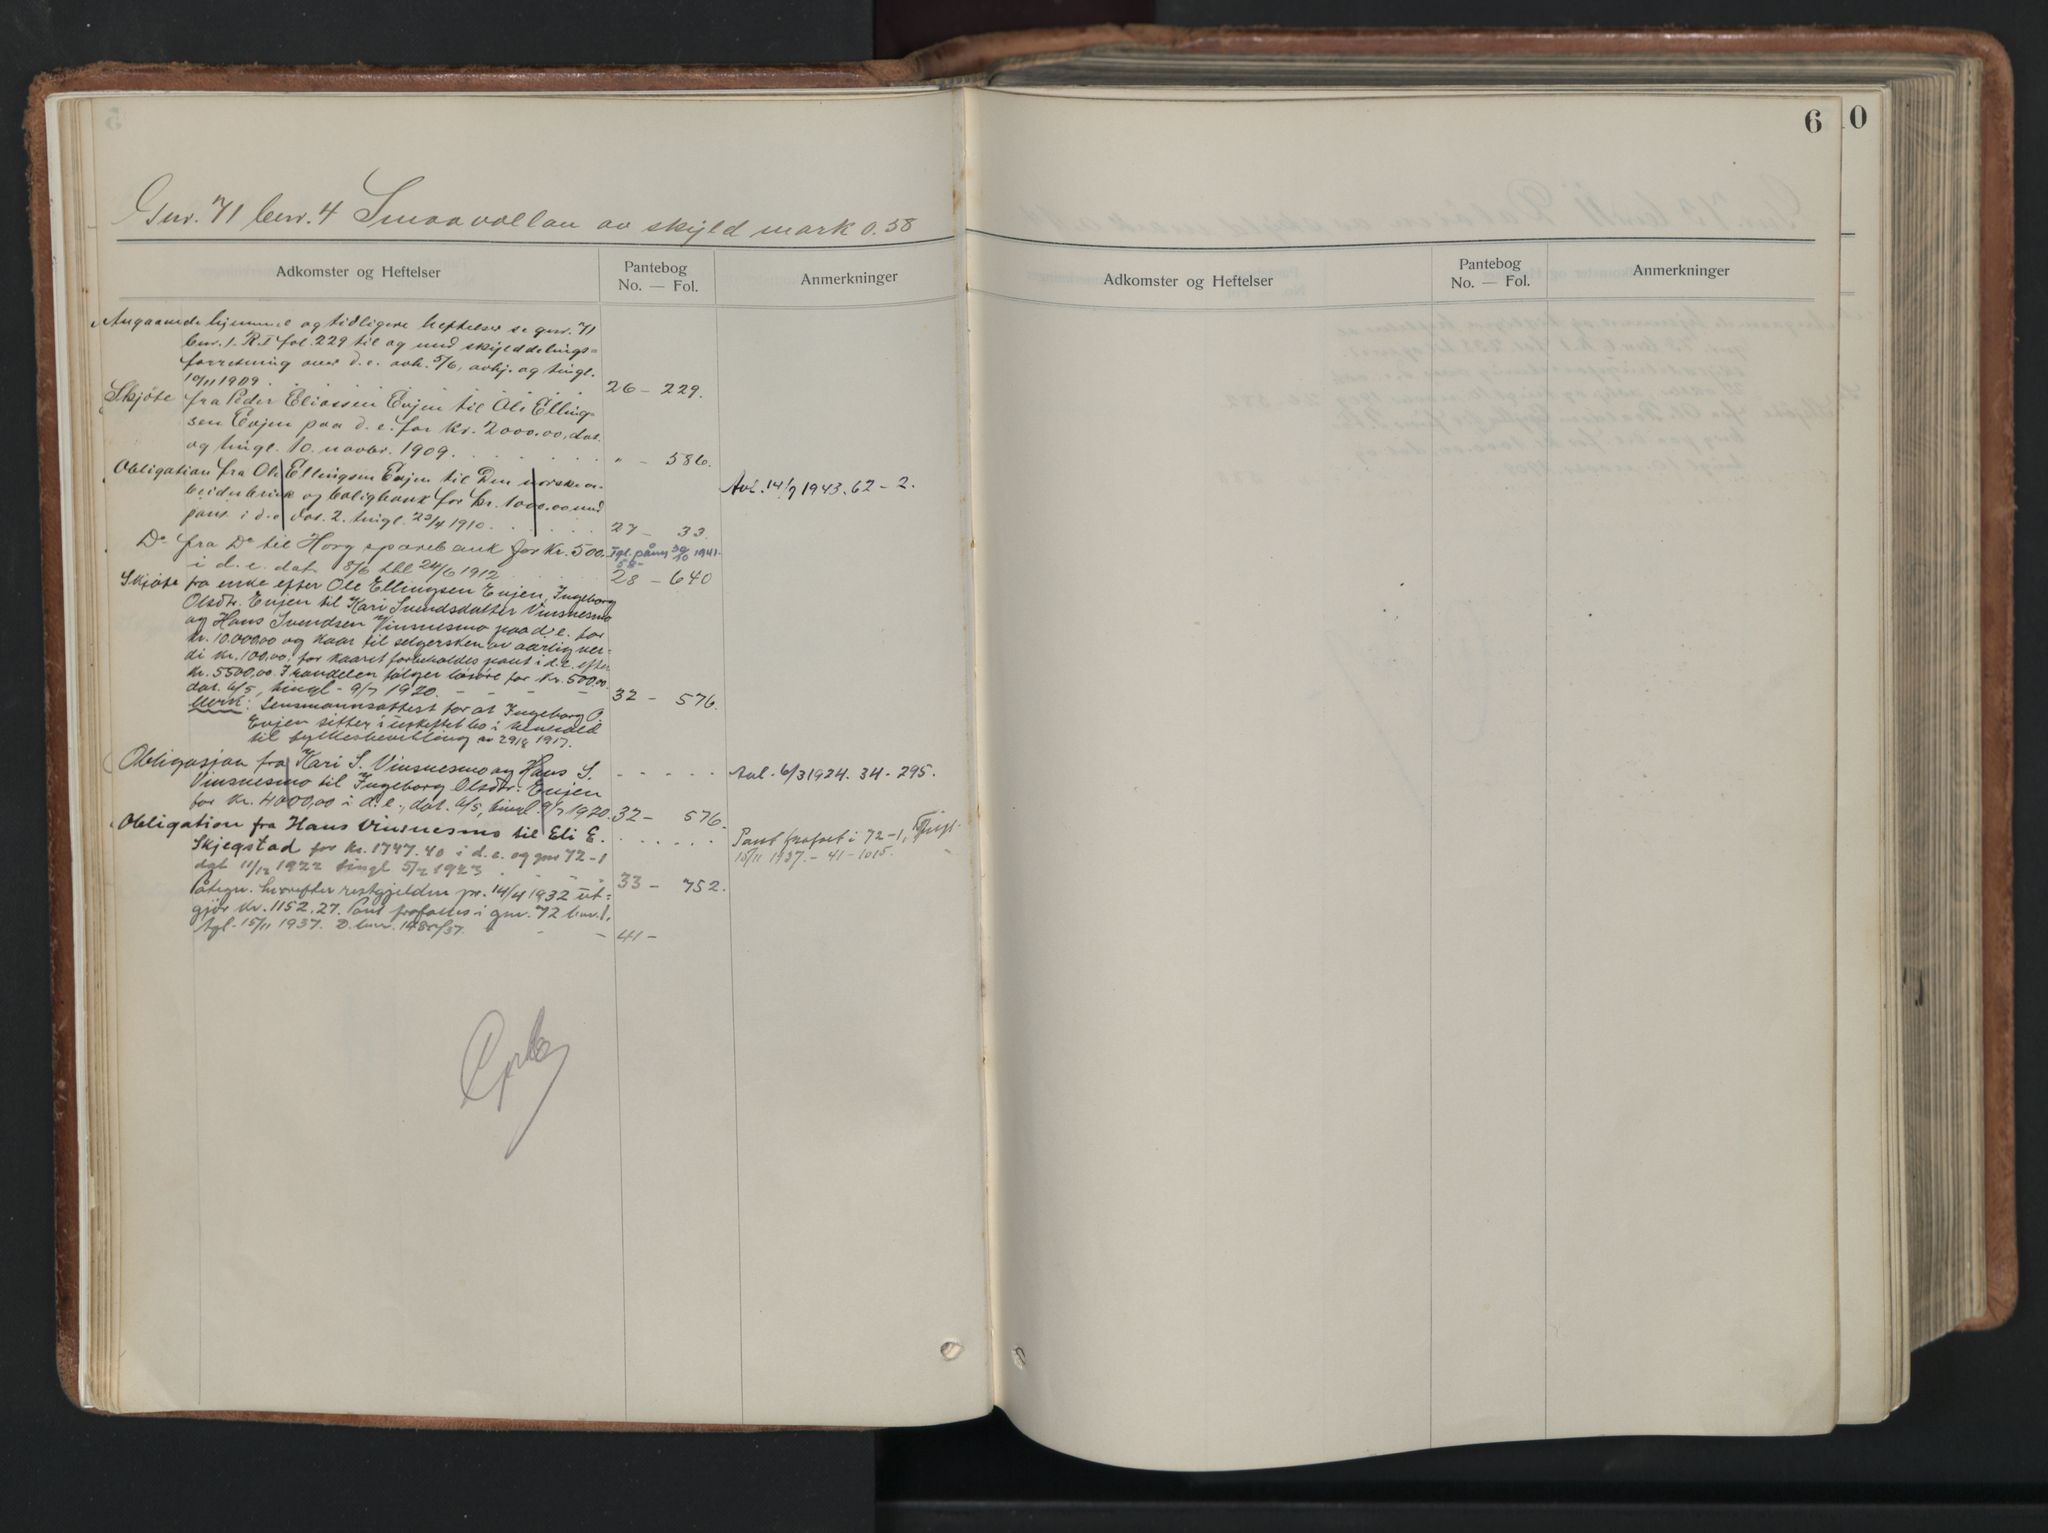 6
0
Gnr. 71 bnr. 4 Smaavollan av skyld mark 0.58
Adkomster og Heftelser
Pantebog
No. — Fol.
Anmerkninger
Adkomster og Heftelser
Pantebog
No. — Fol.
Anmerkninger
Angaaende hjemmel og tidligere heftelser se gnr. 71
bnr. 1. R.I fol. 229 til og med skylddelings=
forretning over d.e. avh. 5/6, avhj. og tingl.
10/11 1909. 26 — 229.
Skjøte fra Peder Eliassen Evjen til Ole Elling-
sen Evjen paa d.e. for kr. 2000.00, dat.
og tingl. 10. novbr. 1909. " — 586.
Obligation fra Ole Ellingsen Evjen til Den norske ar-
beiderbruk og boligbank for kr. 1000.00 med
pant i d.e. dat. 2. tingl. 23/4 1910. 27 — 33.
Avl. 14/9 1943. 62 – 2.
Do fra Do til Horg sparebank for kr. 500.
Tgl. påny 30/10 1941
58-
i d.e. dat. 8/6 tbl 24/6 1912 28 — 640
Skjøte fra enke efter Ole Ellingsen Evjen, Ingeborg
Olsdtr. Evjen til Kari Svendsdatter Vinsnesmo
og Hans Svendsen Vinsnesmo paa d.e. for
kr. 10.000,00 og kaar til selgersken av aarlig ver-
di kr. 100,00; for kaaret forbeholdes pant i d.e. efter
kr. 5500,00. I handelen følger løsøre for kr. 500,00.
dat. 6/5, tingl. 9/7 1920. 32 — 576.
Merk: Lensmannsattest for at Ingeborg O.
Evjen sitter i uskiftet bo i henhold
til fylkesbevilling av 29/8 1917.
Obligasjon fra Kari S. Vinsnesmo og Hans S.
Vinsnesmo til Ingeborg Olsdtr. Evjen
for kr. 4000,00 i d.e., dat. 6/5, tingl. 9/7 1920. 32 — 576.
Avl. 6/3 1924. 34 - 295.
Obligation fra Hans Vinsnesmo til Eli E.
Skjegstad for kr. 1747.40 i d.e. og gnr 72-1
dat 11/12 1922 tingl 5/2 1923 33 — 752.
Pant frafalt i 72-1, Tingl.
15/11 1937. – 41 – 1015.
Påtegn. hvorefter restgjelden pr. 14/4 1932 ut=
gjør kr. 1152,27. Pant frafalles i gnr. 72 bnr. 1.
tgl. 15/11 1937. D.bnr. /37. 41 —